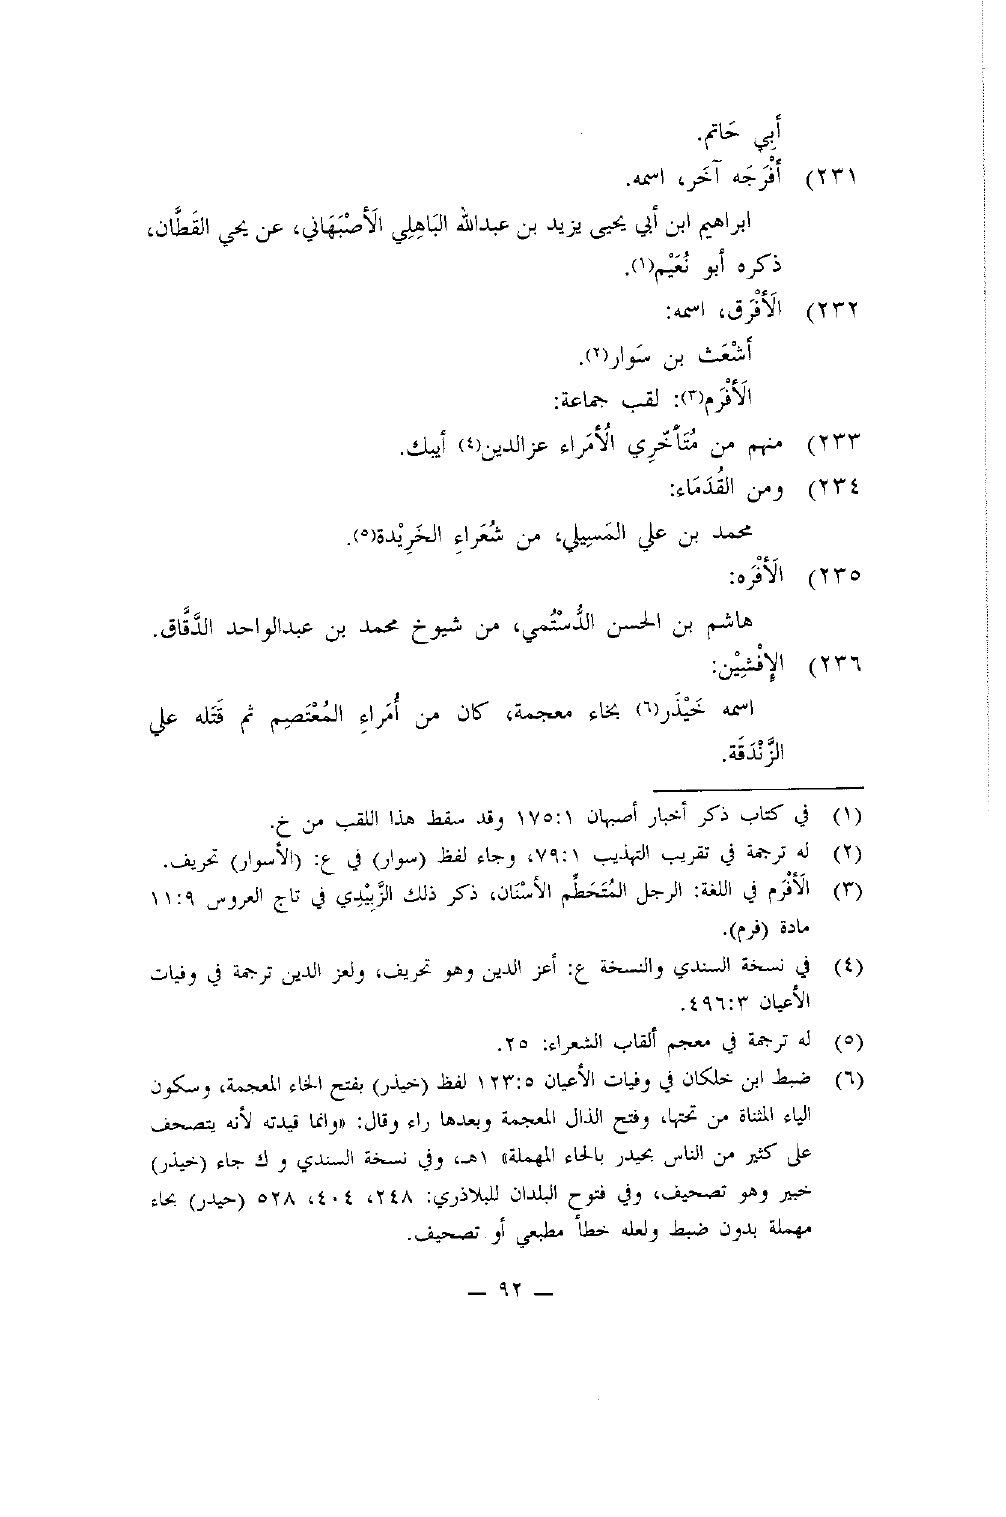 أَبِي حَاتم.
٢٣١) أَفْرَجَه آخَر، اسمه.
ابراهيم ابن أبي يحيى يزيد بن عبدالله البَاهِلِي الَأصْبَهَاني، عن يحي القَطَّان،
ذكره أبو نُعَيْم(١).
٢٣٢) الَأفْرَق، اسمه:
أشْعَث بن سَوار(٢).
الَأفْرَم(٣): لقب جماعة:
٢٣٣) منهم من مُتَأخّرِي الُأمَراء عزالدين(٤) أيبك.
٢٣٤) ومن القُدَمَاء:
محمد بن علي المَسِيلي، من شُعَراءِ الخَرِيْدة(٥).
٢٣٥) الَأفْرَه:
هاشم بن الحسن الدُّسْتُمي، من شيوخ محمد بن عبدالواحد الدَّقَّاق.
٢٣٦) الإفْشِيْن:
اسمه خَيْذَر(٦) بخاء معجمة، كان من أُمَراءِ المُعْتَصِم ثم قَتَله علي
الزَّنْدَقَة.
(١) في كتاب ذكر أخبار أصبهان ١٧٥:١ وقد سقط هذا اللقب من خ.
(٢) له ترجمة في تقريب التهذيب ٧٩:١، وجاء لفظ (سوار) في ع: (الأسوار) تحريف.
(٣) الَأفْرَم في اللغة: الرجل المُتَحَطِّم الأسْنَان، ذكر ذلك الزَّبِيْدِي في تاج العروس ١١:٩
مادة (فرم).
(٤) في نسخة السندي والنسخة ع: أعز الدين وهو تحريف، ولعز الدين ترجمة في وفيات
الأعيان ٤٩٦:٣.
(٥) له ترجمة في معجم ألقاب الشعراء: ٢٥.
(٦) ضبط ابن خلكان في وفيات الأعيان ١٢٣:٥ لفظ (خيذر) بفتح الخاء المعجمة، وسكون
الياء المثناة من تحتها، وفتح الذال المعجمة وبعدها راء وقال: «وانما قيدته لأنه يتصحف
على كثير من الناس بحيدر بالحاء المهملة» ١هـ، وفي نسخة السندي و ك جاء (خيذر)
خبير وهو تصحيف، وفي فتوح البلدان للبلاذري: ٢٤٨، ٤٠٤، ٥٢٨ (حيدر) بحاء
مهملة بدون ضبط ولعله خطأ مطبعي أو تصحيف.
— ٩٢ —